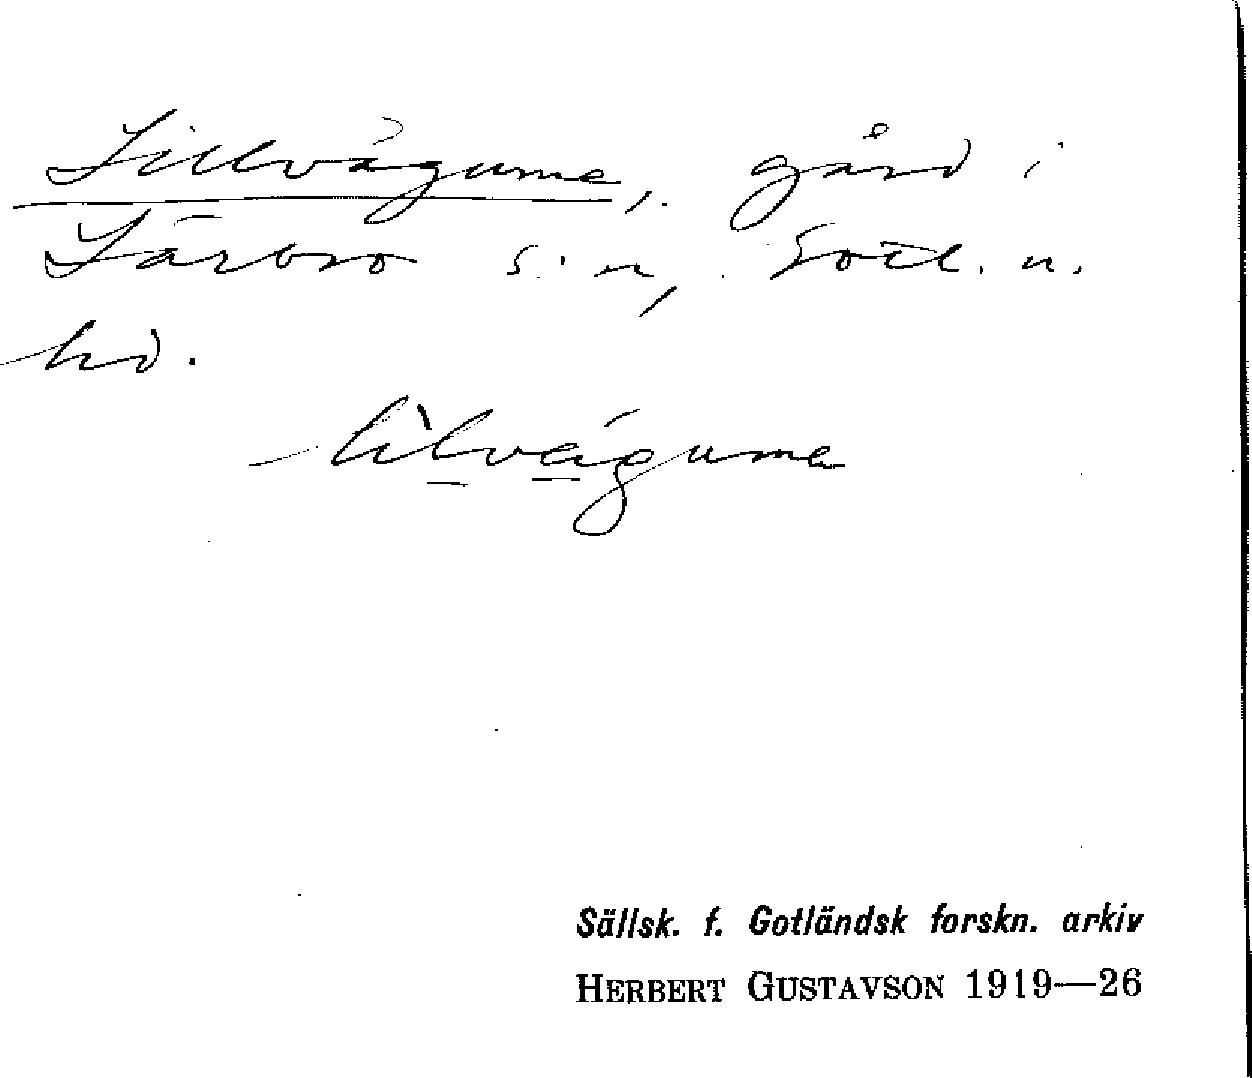 Lillvägume, gård i
Lärbro s:n, Gotl. n.
hd.
lìlváiguma
Sällsk. f. Gotländsk forskn. arkiv
HERBERT GUSTAVSON 1919—26